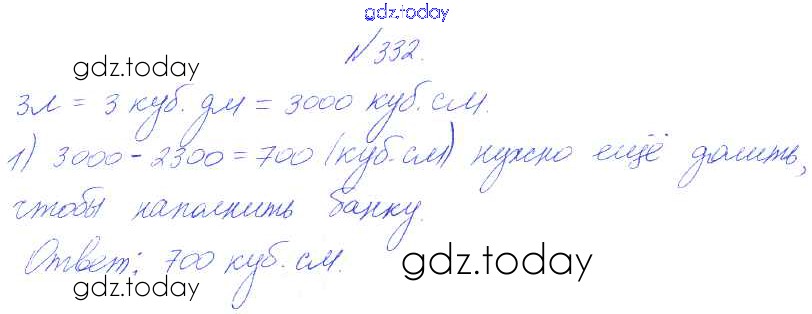 gdz.today
№332.
gdz.today
3л = 3 куб. дм = 3000 куб. см.
1) 3000 - 2300 = 700 (куб. см) нужно ещё долить,
чтобы наполнить банку.
Ответ: 700 куб. см.
gdz.today
gdz.today